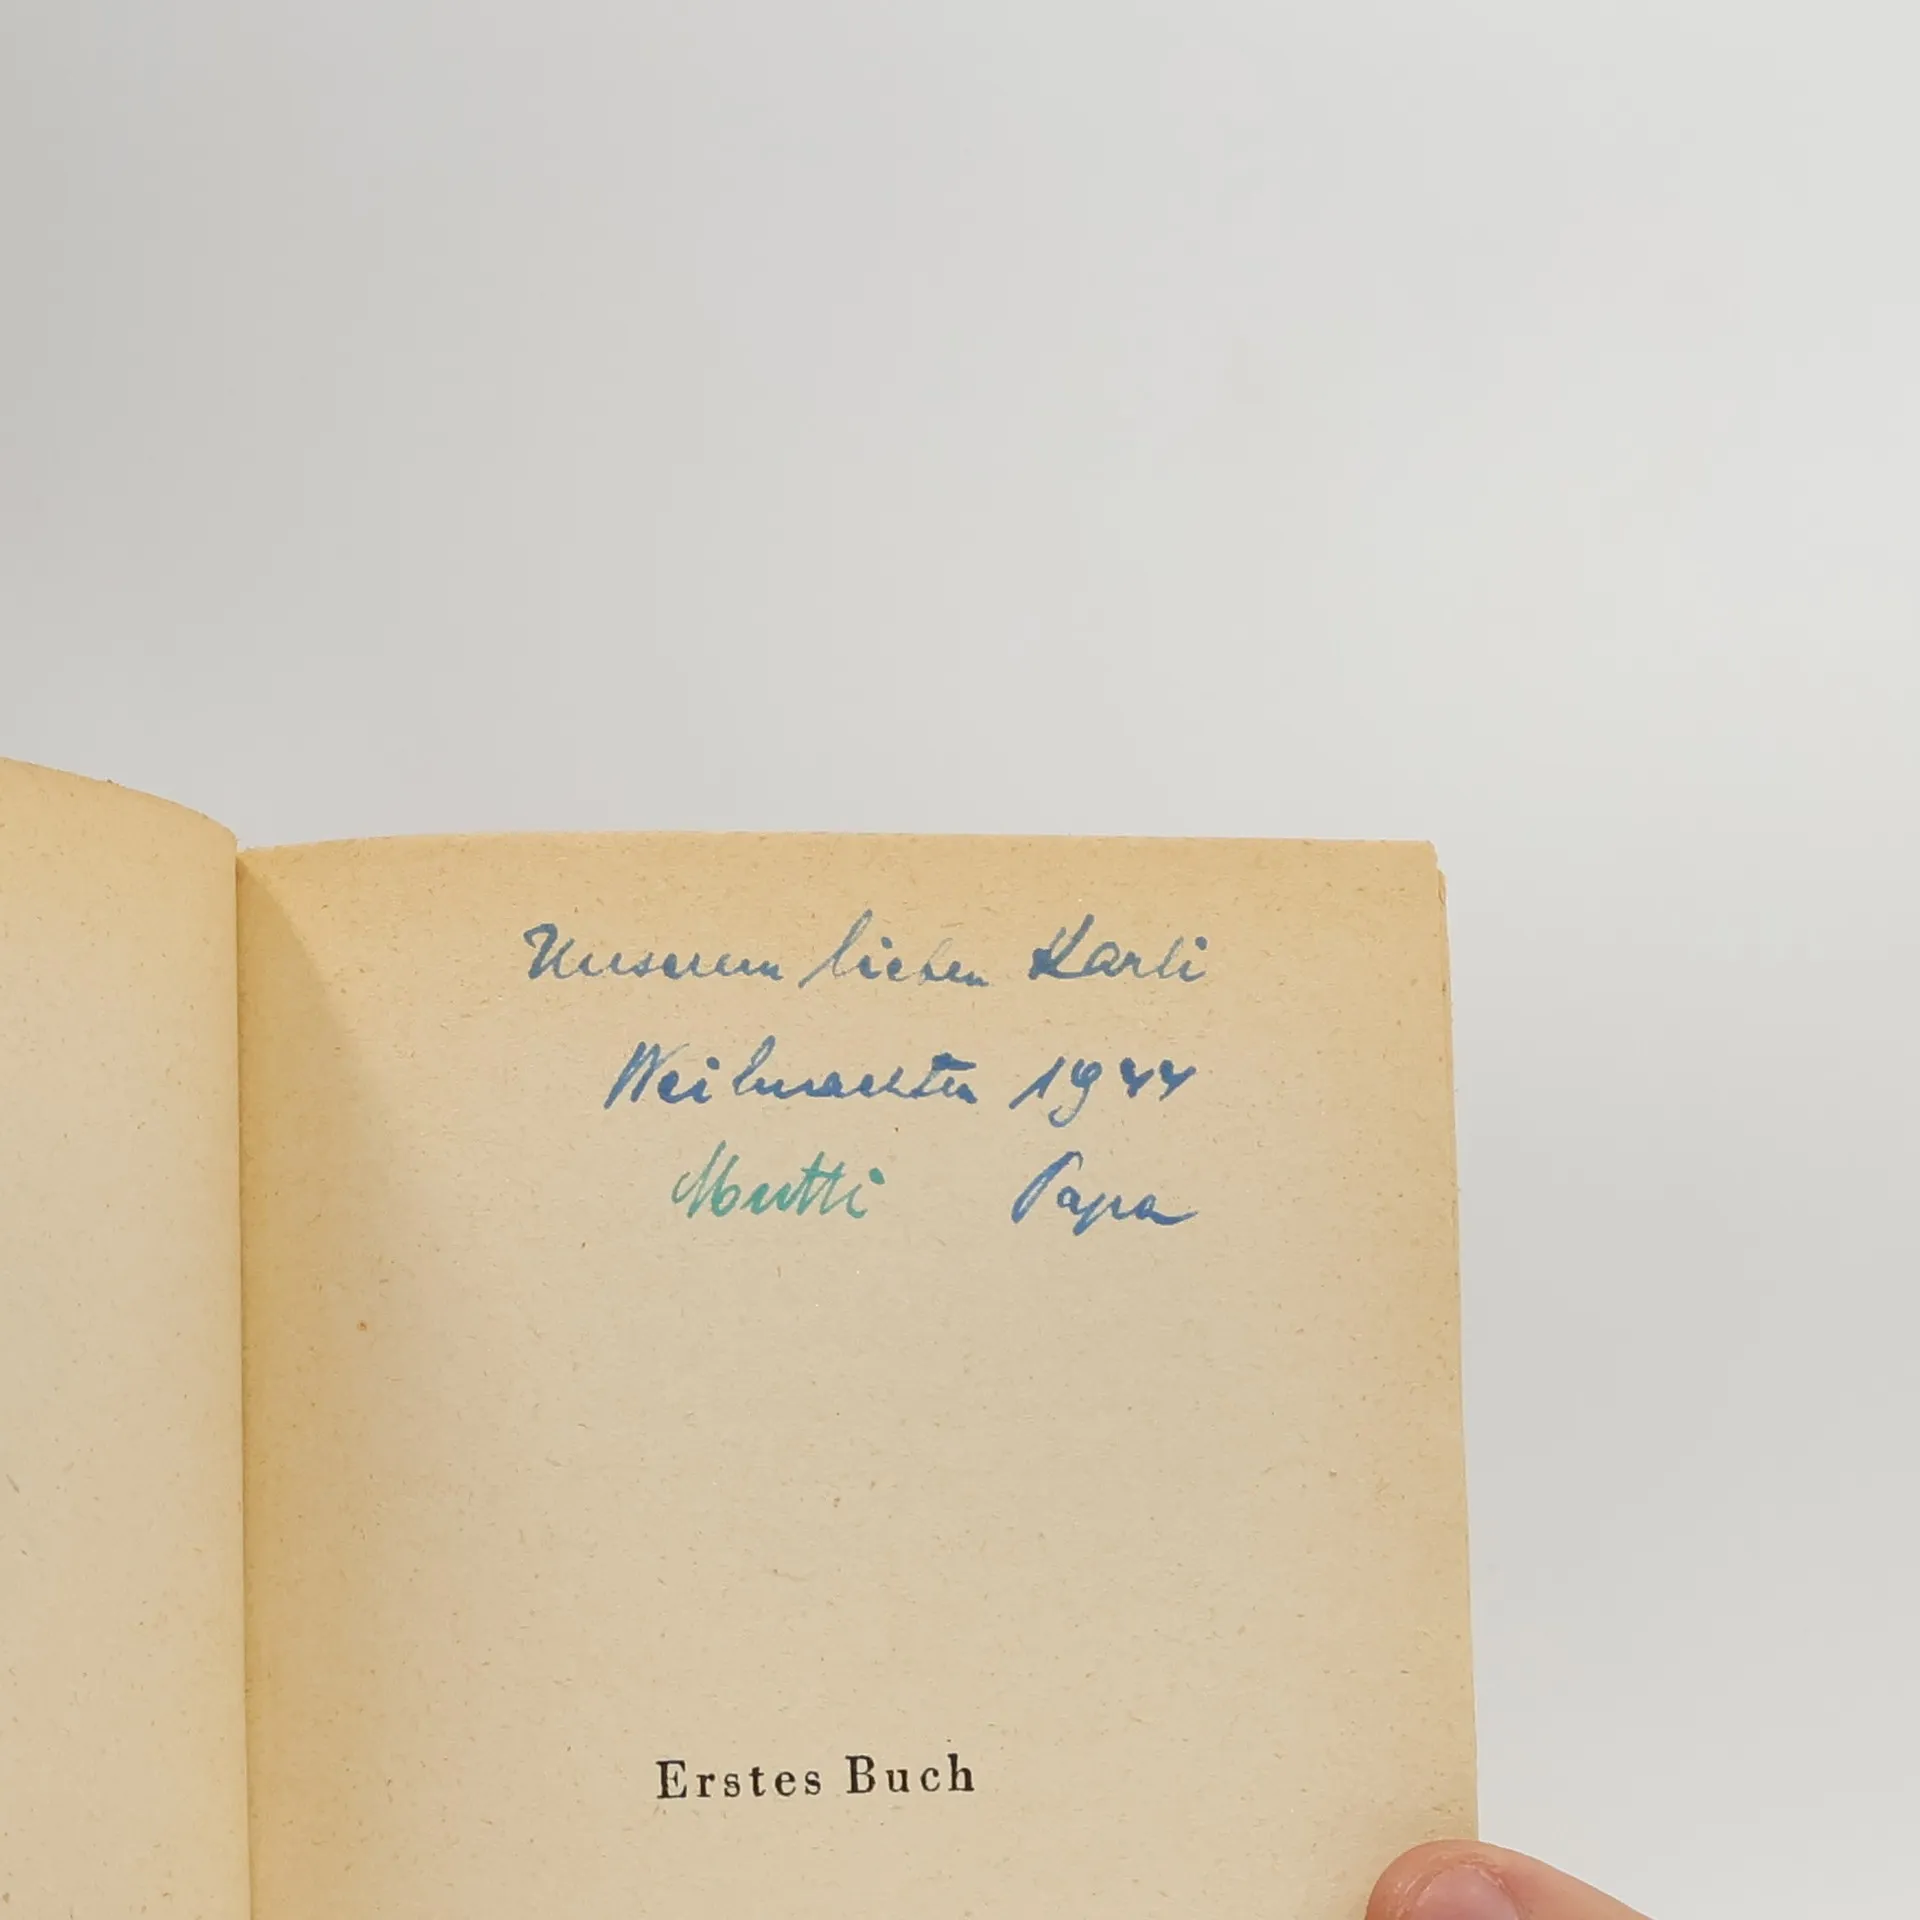 Unserem lieben Karli
Weihnachten 1944
Mutti Papa
Erstes Buch